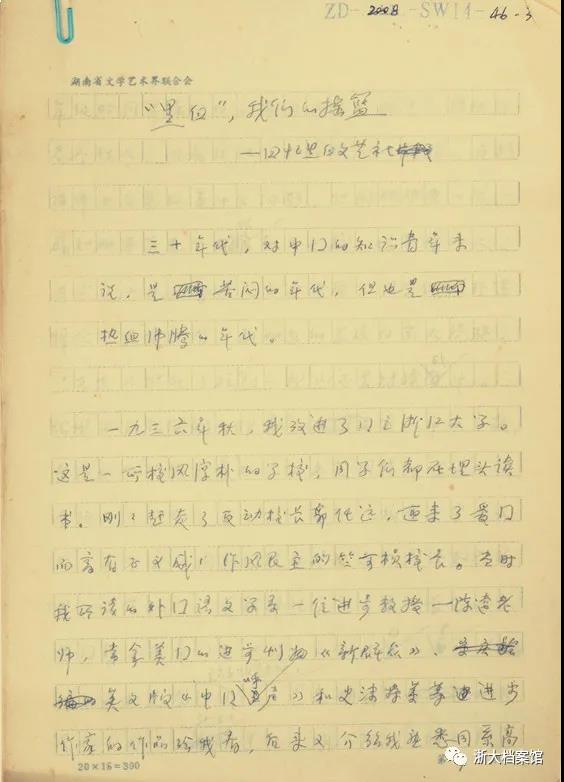 ZD-2008-SW14-46-3
湖南省文学艺术界联合会
"黑白",我们的摇篮
——回忆黑白文艺社
三十年代,对中国的知识青年来
说,是苦闷的年代,但也是
热血沸腾的年代。
一九三六年秋,我考进了国立浙江大学。
这是一所校风淳朴的学校,同学们都在埋头读
书。刚刚赶走了反动校长郭任远,迎来了爱国
而富有正义感、作风民主的竺可桢校长。当时
我所读的外国语文学系一位进步教授—陈逵老
师,常拿美国的进步刊物《新群众》、
英文版《中国呼声》和史沫特莱等进步
作家的作品给我看,后来又介绍我熟悉同系高
20×15=300 第
浙大档案馆